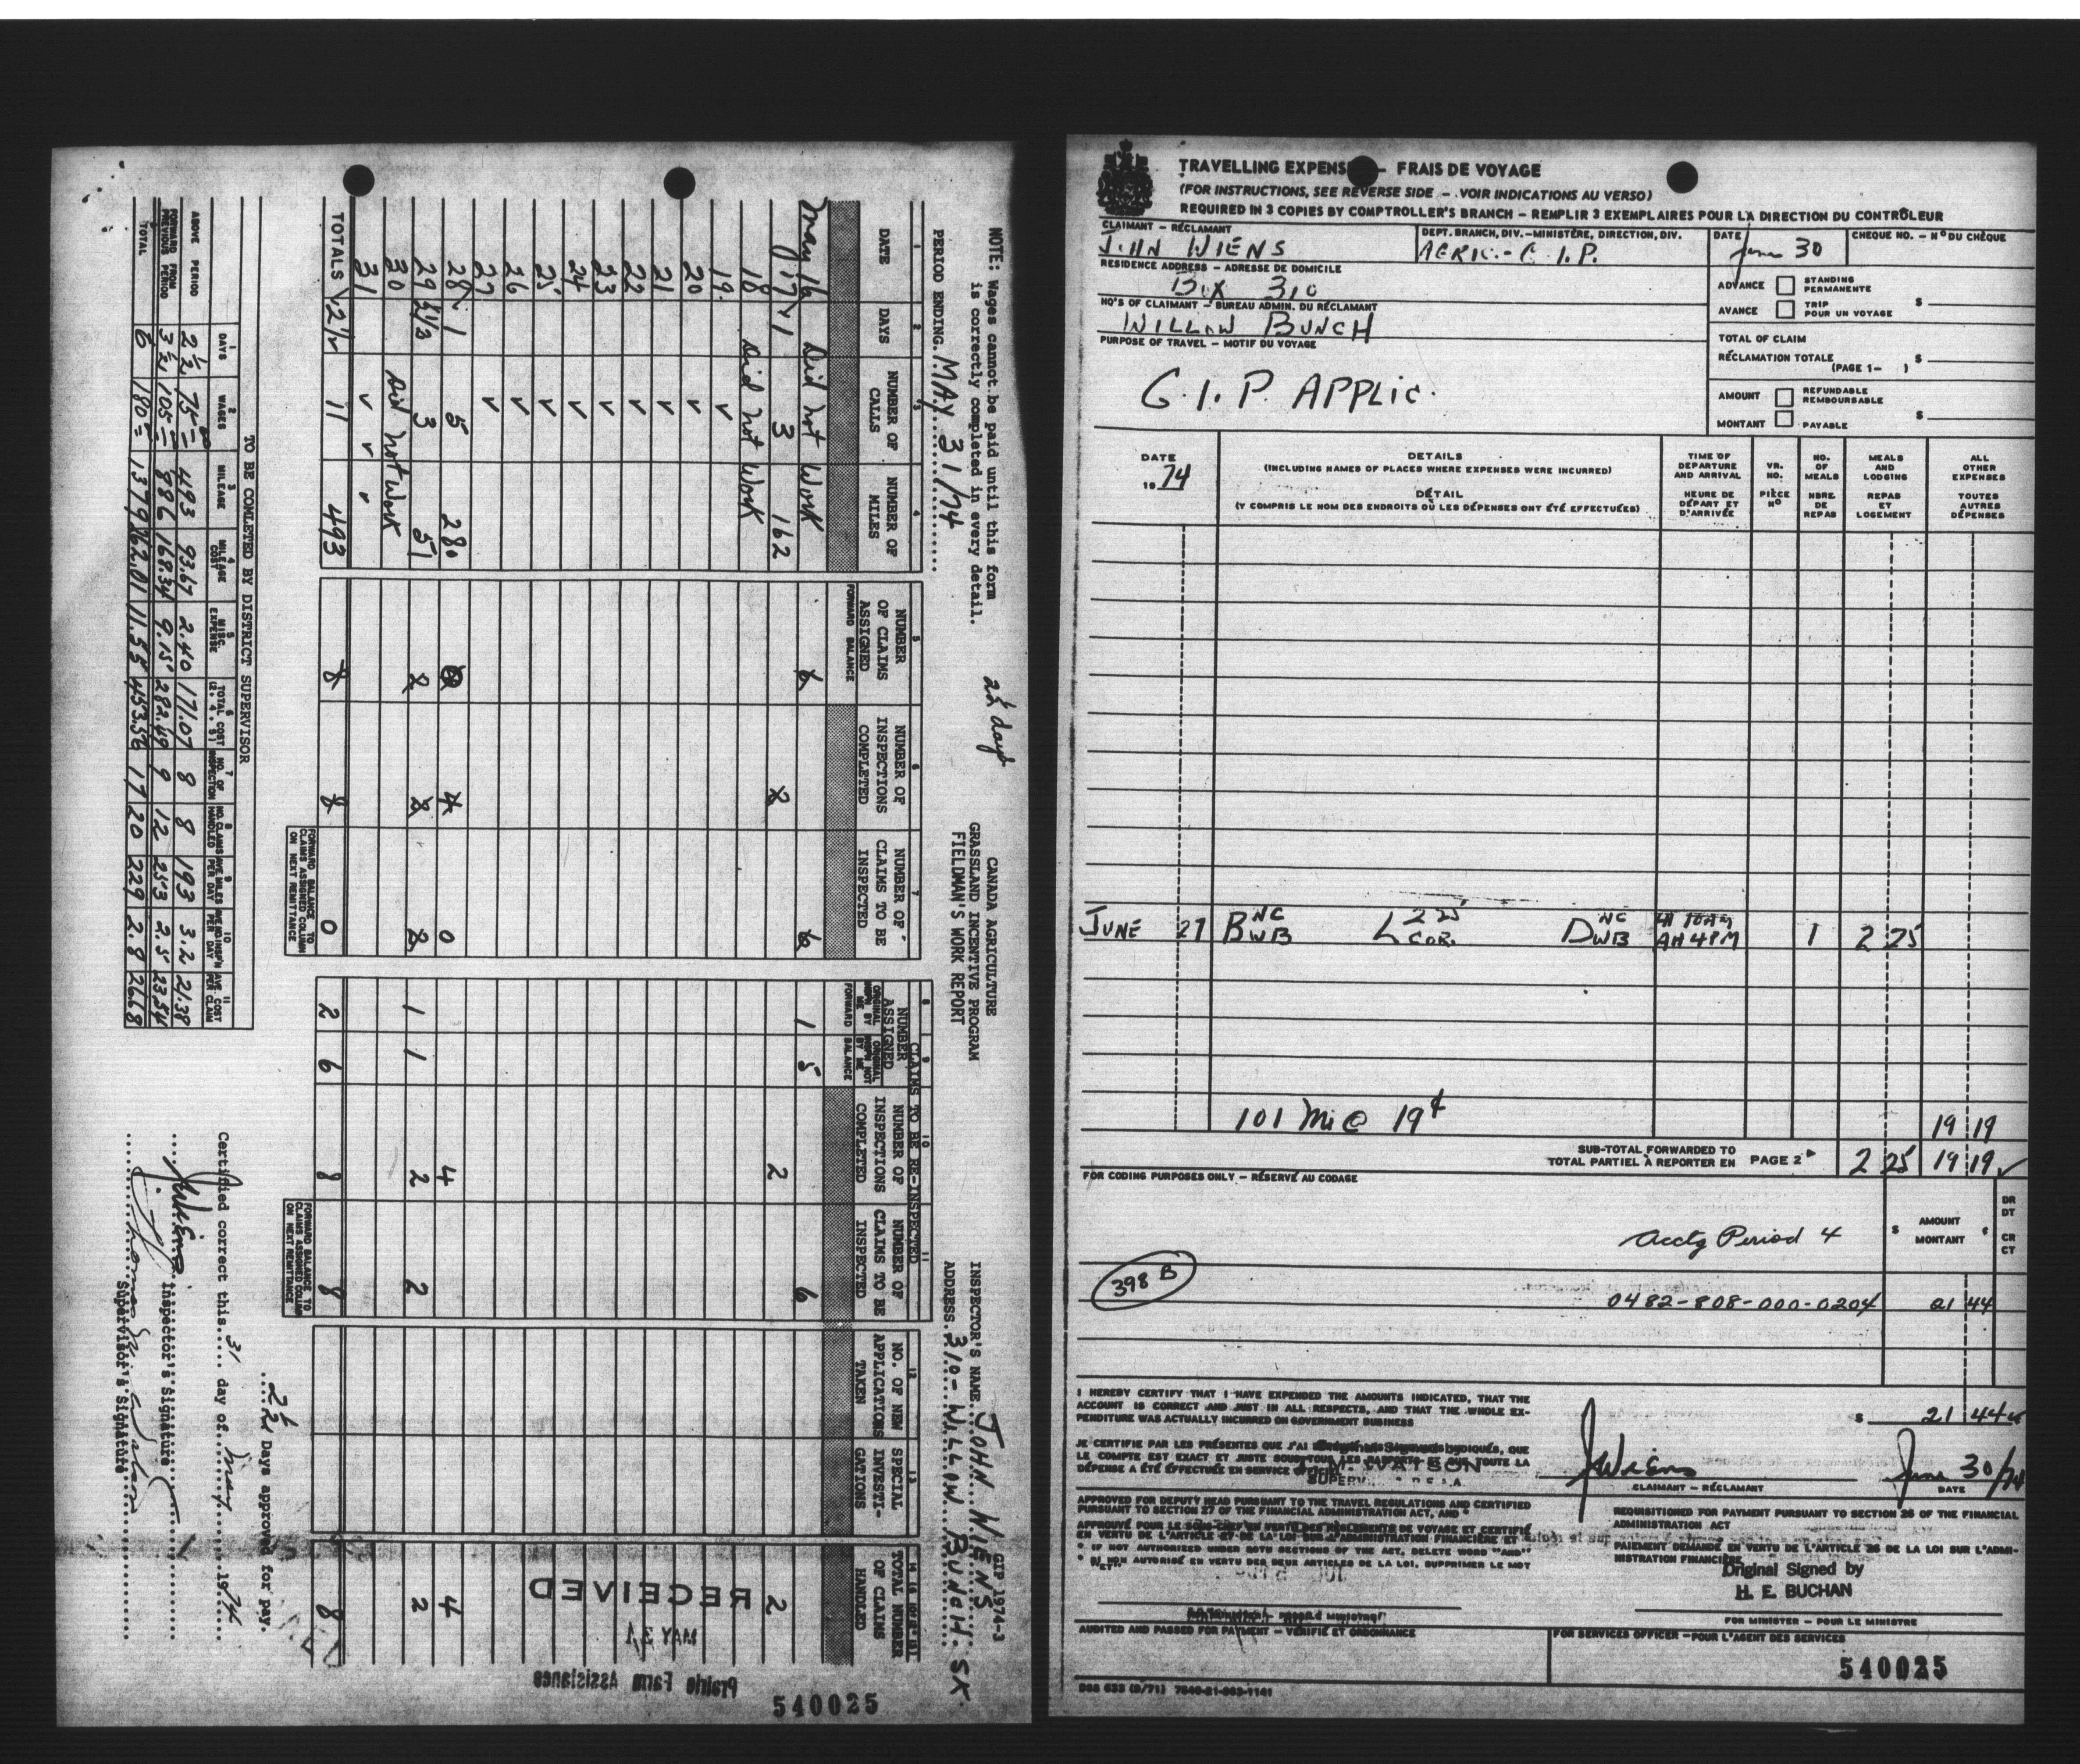 NOTE: Wages cannot be paid until this form
is correctly completed in every detail.
2½ days
CANADA AGRICULTURE
GRASSLAND INCENTIVE PROGRAM
FIELDMAN'S WORK REPORT
GIP 1974-3
PERIOD ENDING. MAY 31/74
INSPECTOR'S NAME. JOHN WIENS
ADDRESS. 310 - WILLOW BUNCH. SK
CLAIMS TO BE RE-INSPECTED
1 DATE
2 DAYS
3 NUMBER OF CALLS
4 NUMBER OF MILES
5 NUMBER OF CLAIMS ASSIGNED
FORWARD BALANCE
6 NUMBER OF INSPECTIONS COMPLETED
7 NUMBER OF CLAIMS TO BE INSPECTED
NUMBER ASSIGNED
8 ORIGINAL INSPN BY ME
FORWARD
9 ORIGINAL INSPN NOT BY ME
BALANCE
10 NUMBER OF INSPECTIONS COMPLETED
11 NUMBER OF CLAIMS TO BE INSPECTED
12 NO. OF NEW APPLICATIONS TAKEN
13 SPECIAL INVESTIGATIONS
14 TOTAL NUMBER OF CLAIMS HANDLED
May 16 Did not Work 6 6 1 5 6
17 1 3 162 2 2 2
18 Did not Work
19 ✓
20 ✓
21 ✓
22 ✓
23 ✓
24 ✓
25 ✓
26 ✓
27 ✓
28 1 5 280 4 0 4 4
29 ½ 3 51 2 2 2 1 1 2 2 2
30 Did not Work
31 ✓ ✓
TOTALS 2½ 11 493 8 8 0 2 6 8 8 8
FORWARD BALANCE TO CLAIMS ASSIGNED COLUMN ON NEXT REMITTANCE
FORWARD BALANCE TO CLAIMS ASSIGNED COLUMN ON NEXT REMITTANCE
RECEIVED
MAY 31
Prairie Farm Assistance
540025
TO BE COMLETED BY DISTRICT SUPERVISOR
1 DAYS
2 WAGES
3 MILEAGE
4 MILEAGE COST
5 MISC. EXPENSE
6 TOTAL COST (2, 4, 5)
7 NO. OF INSPECTION
8 NO. CLAIMS HANDLED
9 AVE. MILES PER DAY
10 AVE. NO INSP'N PER DAY
11 AVE. COST PER CLAIM
ABOVE PERIOD 2½ 75= 493 93.67 2.40 171.07 8 8 193 3.2 21.38
FORWARD FROM PREVIOUS PERIOD 3½ 105= 886 168.34 9.15 282.49 9 12 253 2.5 23.54
TOTAL 6 180= 1379 262.01 11.55 453.56 17 20 229 2.8 26.68
2½ Days approved for pay.
Certified correct this 31 day of May 1974
J. Wiens
Inspector's Signature
Supervisor's Signature
TRAVELLING EXPENSE - FRAIS DE VOYAGE
(FOR INSTRUCTIONS, SEE REVERSE SIDE - VOIR INDICATIONS AU VERSO)
REQUIRED IN 3 COPIES BY COMPTROLLER'S BRANCH - REMPLIR 3 EXEMPLAIRES POUR LA DIRECTION DU CONTRÔLEUR
CLAIMANT - RÉCLAMANT
JOHN WIENS
DEPT. BRANCH, DIV. - MINISTÈRE, DIRECTION, DIV.
AGRIC. - G.I.P.
DATE
June 30
CHEQUE NO. - Nº DU CHÈQUE
RESIDENCE ADDRESS - ADRESSE DE DOMICILE
Box 310
HQ'S OF CLAIMANT - BUREAU ADMIN. DU RÉCLAMANT
WILLOW BUNCH
PURPOSE OF TRAVEL - MOTIF DU VOYAGE
G.I.P. APPLIC.
ADVANCE
AVANCE
STANDING
PERMANENTE
TRIP
POUR UN VOYAGE
$
TOTAL OF CLAIM
RÉCLAMATION TOTALE $
(PAGE 1- )
AMOUNT
MONTANT
REFUNDABLE
REMBOURSABLE
PAYABLE
$
DATE
1974
DETAILS
(INCLUDING NAMES OF PLACES WHERE EXPENSES WERE INCURRED)
DÉTAIL
(Y COMPRIS LE NOM DES ENDROITS OÙ LES DÉPENSES ONT ÉTÉ EFFECTUÉES)
TIME OF DEPARTURE AND ARRIVAL
HEURE DE DÉPART ET D'ARRIVÉE
VR. NO.
PIÈCE Nº
NO. OF MEALS
NBRE. DE REPAS
MEALS AND LODGING
REPAS ET LOGEMENT
ALL OTHER EXPENSES
TOUTES AUTRES DÉPENSES
JUNE 27 B NC WB L 2 25 COR. D NC WB LH 10AM AH 4PM 1 2 25
101 Mi @ 19¢ 19 19
SUB-TOTAL FORWARDED TO
TOTAL PARTIEL À REPORTER EN PAGE 2 2 25 19 19 ✓
FOR CODING PURPOSES ONLY - RÉSERVÉ AU CODAGE
AMOUNT
MONTANT
$ ¢
DR
DT
CR
CT
Acctg Period 4
398 B
0482-808-000-0204 21 44
I HEREBY CERTIFY THAT I HAVE EXPENDED THE AMOUNTS INDICATED, THAT THE
ACCOUNT IS CORRECT AND JUST IN ALL RESPECTS, AND THAT THE WHOLE EX-
PENDITURE WAS ACTUALLY INCURRED ON GOVERNMENT BUSINESS
$ 21 44
JE CERTIFIE PAR LES PRÉSENTES QUE J'AI DÉPENSÉ LES MONTANTS INDIQUÉS, QUE
LE COMPTE EST EXACT ET JUSTE SOUS TOUS LES RAPPORTS ET QUE TOUTE LA
DÉPENSE A ÉTÉ EFFECTUÉE EN SERVICE OFFICIEL
M. WATSON
J Wiens
CLAIMANT - RÉCLAMANT
June 30/74
DATE
APPROVED FOR DEPUTY HEAD PURSUANT TO THE TRAVEL REGULATIONS AND CERTIFIED
PURSUANT TO SECTION 27 OF THE FINANCIAL ADMINISTRATION ACT, AND *
APPROUVÉ POUR LE SOUS-CHEF EN VERTU DES RÈGLEMENTS DE VOYAGE ET CERTIFIÉ
EN VERTU DE L'ARTICLE 27 DE LA LOI SUR L'ADMINISTRATION FINANCIÈRE ET
* IF NOT AUTHORIZED UNDER BOTH SECTIONS OF THE ACT, DELETE WORD "AND"
* SI NON AUTORISÉ EN VERTU DES DEUX ARTICLES DE LA LOI, SUPPRIMER LE MOT
"ET"
REQUISITIONED FOR PAYMENT PURSUANT TO SECTION 26 OF THE FINANCIAL
ADMINISTRATION ACT
PAIEMENT DEMANDÉ EN VERTU DE L'ARTICLE 26 DE LA LOI SUR L'ADMI-
NISTRATION FINANCIÈRE
Original Signed by
H. E. BUCHAN
FOR MINISTER - POUR LE MINISTRE
AUDITED AND PASSED FOR PAYMENT - VÉRIFIÉ ET ORDONNANCÉ
FOR SERVICES OFFICER - POUR L'AGENT DES SERVICES
540025
DSS 633 (9/71) 7540-21-003-1141